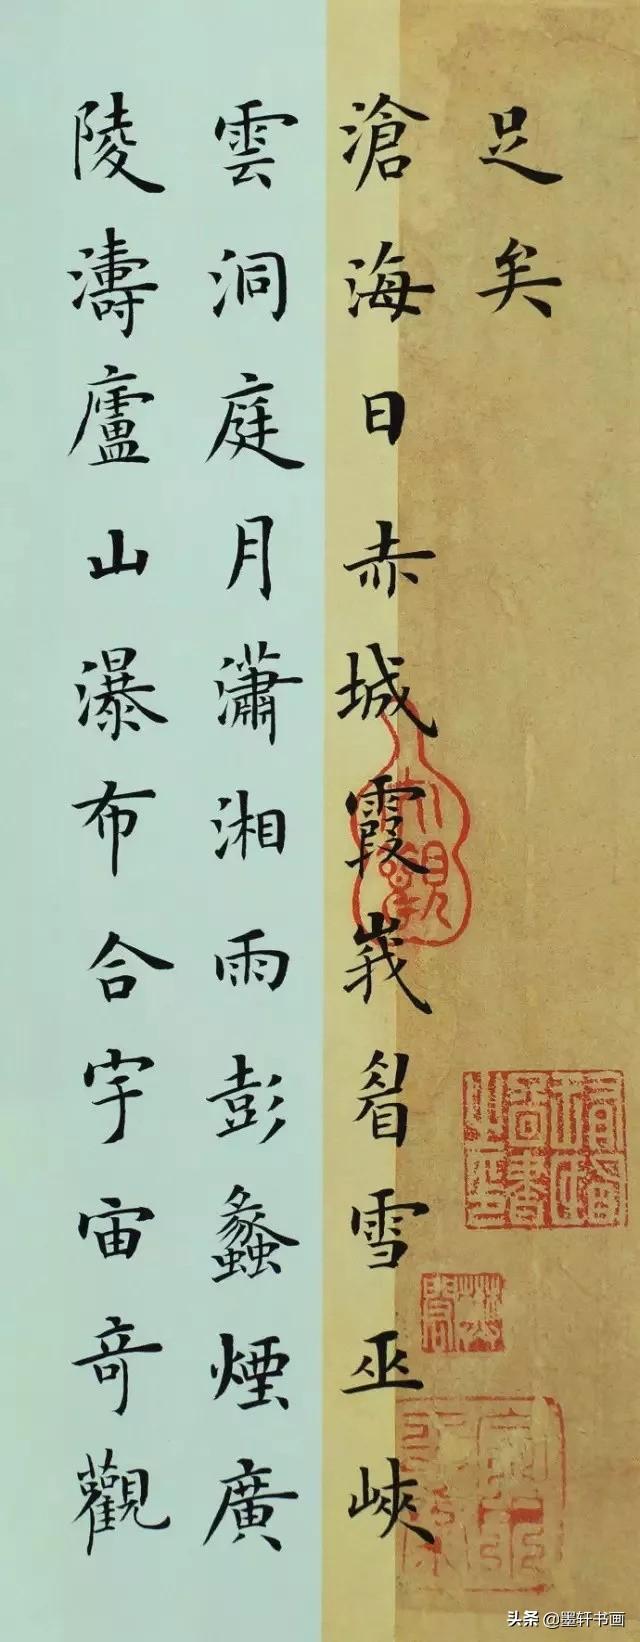 足矣
滄海日赤城霞峩眉雪巫峽
雲洞庭月瀟湘雨彭蠡煙廣
陵濤廬山瀑布合宇宙竒觀
头条 @墨轩书画